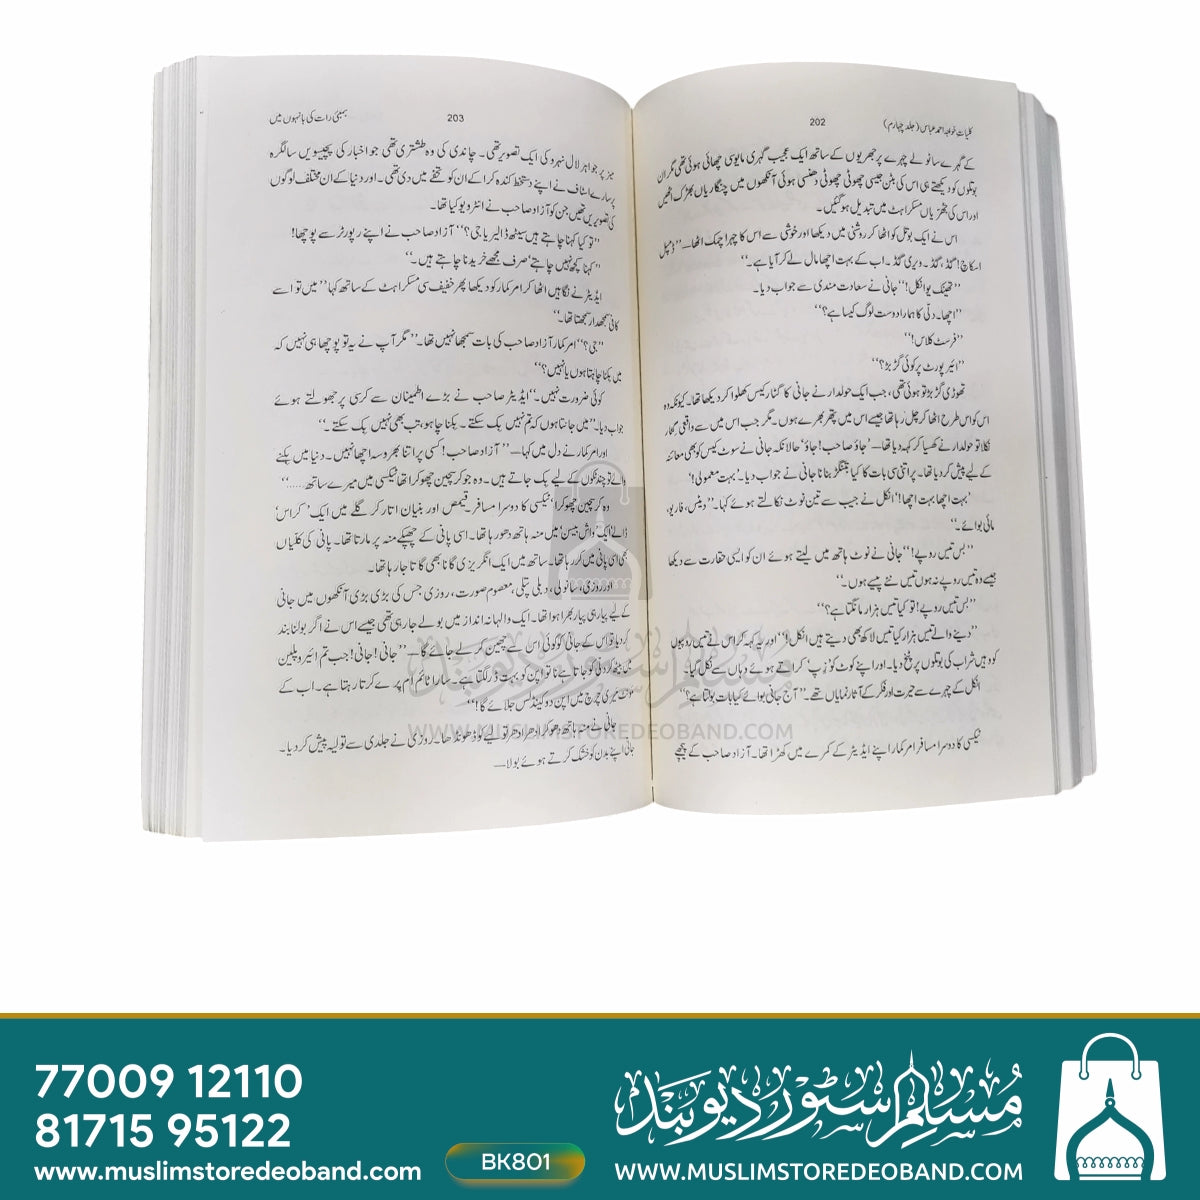 202
کلیات خواجہ احمد عباس (جلد چہارم)
کے گہرے سانولے چہرے پر جھریوں کے ساتھ ایک عجیب گہری مایوسی چھائی ہوئی تھی مگر ان
بوتلوں کو دیکھتے ہی اس کی بٹن جیسی چھوٹی چھوٹی دھنسی ہوئی آنکھوں میں چنگاریاں بھڑک اٹھیں
اور اس کی جھریاں مسکراہٹ میں تبدیل ہوگئیں۔
اس نے ایک بوتل کو اٹھا کر روشنی میں دیکھا اور خوشی سے اس کا چہرا چمک اٹھا—’’ڈمپل
اسکاچ! گڈ، گڈ۔ ویری گڈ۔ اب کے بہت اچھا مال لے کر آیا ہے۔‘‘
’’تھینک یو انکل!‘‘ جانی نے سعادت مندی سے جواب دیا۔
’’اچھا۔ دلّی کا ہمارا دوست لوگ کیسا ہے؟‘‘
’’فرسٹ کلاس!‘‘
’’ایئرپورٹ پر کوئی گڑبڑ؟‘‘
تھوڑی گڑبڑ تو ہوئی تھی، جب ایک حولدار نے جانی کا گٹار کیس کھلوا کر دیکھا تھا۔ کیونکہ وہ
اس کو اس طرح اٹھا کر چل رہا تھا جیسے اس میں پتھر بھرے ہوں۔ مگر جب اس میں سے واقعی گٹار
نکلا تو حولدار نے کھسیا کر کہہ دیا تھا—’جاؤ صاحب! جاؤ‘ حالانکہ جانی نے سوٹ کیس کو بھی معائنہ
کے لیے پیش کر دیا تھا۔ پر اتنی سی بات کا کیا بتنگڑ بنانا جانی نے جواب دیا۔ ’بہت معمولی!‘
’بہت اچھا بہت اچھا!‘ انکل نے جیب سے تین نوٹ نکالتے ہوئے کہا۔ ’’دیٹس، فار یو،
مائی بوائے۔‘‘
’’بس تیس روپے!‘‘ جانی نے نوٹ ہاتھ میں لیتے ہوئے ان کو ایسی حقارت سے دیکھا
جیسے وہ تیس روپے نہ ہوں تیس نئے پیسے ہوں۔‘‘
’’بس تیس روپے! تو کیا تیس ہزار مانگتا ہے؟‘‘
’’دینے والے تیس ہزار کیا تیس لاکھ بھی دیتے ہیں انکل!‘‘ اور یہ کہہ کر اس نے تیس روپوں
کو وہیں شراب کی بوتلوں پر پٹخ دیا۔ اور اپنے کوٹ کو ’زپ‘ کراتے ہوئے وہاں سے نکل گیا۔
انکل کے چہرے سے حیرت اور فکر کے آثار نمایاں تھے۔ ’’آج جانی بوائے کیا بات بولتا ہے؟‘‘
ٹیکسی کا دوسرا مسافر امر کمار اپنے ایڈیٹر کے کمرے میں کھڑا تھا۔ آزاد صاحب کے پیچھے
203
بمبئی رات کی بانہوں میں
میز پر جواہر لال نہرو کی ایک تصویر تھی۔ چاندی کی وہ طشتری تھی جو اخبار کی پچیسویں سالگرہ
پر سارے اسٹاف نے اپنے دستخط کندہ کرا کے ان کو تحفے میں دی تھی۔ اور دنیا کے ان مختلف لوگوں
کی تصویریں تھیں جن کو آزاد صاحب نے انٹرویو کیا تھا۔
’’تو کیا کہنا چاہتے ہیں سیٹھ ڈالیریا جی؟‘‘ آزاد صاحب نے اپنے رپورٹر سے پوچھا!
’’کہنا کچھ نہیں چاہتے‘ صرف مجھے خریدنا چاہتے ہیں۔‘‘
ایڈیٹر نے نگاہیں اٹھا کر امر کمار کو دیکھا پھر خفیف سی مسکراہٹ کے ساتھ کہا ’’میں تو اسے
کافی سمجھدار سمجھتا تھا۔‘‘
’’جی؟‘‘ امر کمار آزاد صاحب کی بات سمجھا نہیں تھا۔ ’’مگر آپ نے یہ تو پوچھا ہی نہیں کہ
میں بکنا چاہتا ہوں یا نہیں؟‘‘
کوئی ضرورت نہیں۔‘‘ ایڈیٹر صاحب نے بڑے اطمینان سے کرسی پر جھولتے ہوئے
جواب دیا۔ ’’میں جانتا ہوں کہ تم نہیں بک سکتے۔ بکنا چاہو، تب بھی نہیں بک سکتے۔‘‘
اور امر کمار نے دل میں کہا—’’آزاد صاحب! کسی پر اتنا بھروسہ اچھا نہیں۔ دنیا میں بکنے
والے تو چند ٹکوں کے لیے بک جاتے ہیں۔ وہ جو کرسچین چھوکرا تھا ٹیکسی میں میرے ساتھ.....‘‘
وہ کرسچین چھوکرا‘ ٹیکسی کا دوسرا مسافر قیمض اور بنیان اتار کر گلے میں ایک ’کراس‘
ڈالے ایک ’واش بیسن‘ میں منہ ہاتھ دھو رہا تھا۔ اسی پانی کے چھپکے منہ پر مارتا تھا۔ پانی کی کلّیاں
بھی اسی پانی میں کر رہا تھا۔ ساتھ میں ایک انگریزی گانا بھی گاتا جا رہا تھا۔
اور روزی، سانولی، دبلی پتلی، معصوم صورت، روزی جس کی بڑی بڑی آنکھوں میں جانی
کے لیے پیار ہی پیار بھرا ہوا تھا۔ ایک والہانہ انداز میں بولے جا رہی تھی جیسے اس نے اگر بولنا بند
کر دیا تو اس کے جانی کو کوئی اس سے چھین کر لے جائے گا—’’جانی! جانی! جب تم ایئروپلین
میں بیٹھ کر دلّی کو جاتا ہے نا تو اپن کو بہت ڈر لگتا ہے۔ سارا ٹائم ام پرے کرتا رہتا ہے۔ اب کے
ماؤنٹ میری چرچ میں اپن دو کینڈلس جلائے گا!‘‘
جانی نے منہ ہاتھ دھو کر ادھر ادھر تولیے کو ڈھونڈھا۔ روزی نے جلدی سے تولیہ پیش کر دیا۔
جانی اپنے بدن کو خشک کرتے ہوئے بولا—
مسلم سٹور دیوبند
WWW.MUSLIMSTOREDEOBAND.COM
77009 12110
81715 95122
www.muslimstoredeoband.com
BK801
مسلم سٹور دیوبند
WWW.MUSLIMSTOREDEOBAND.COM